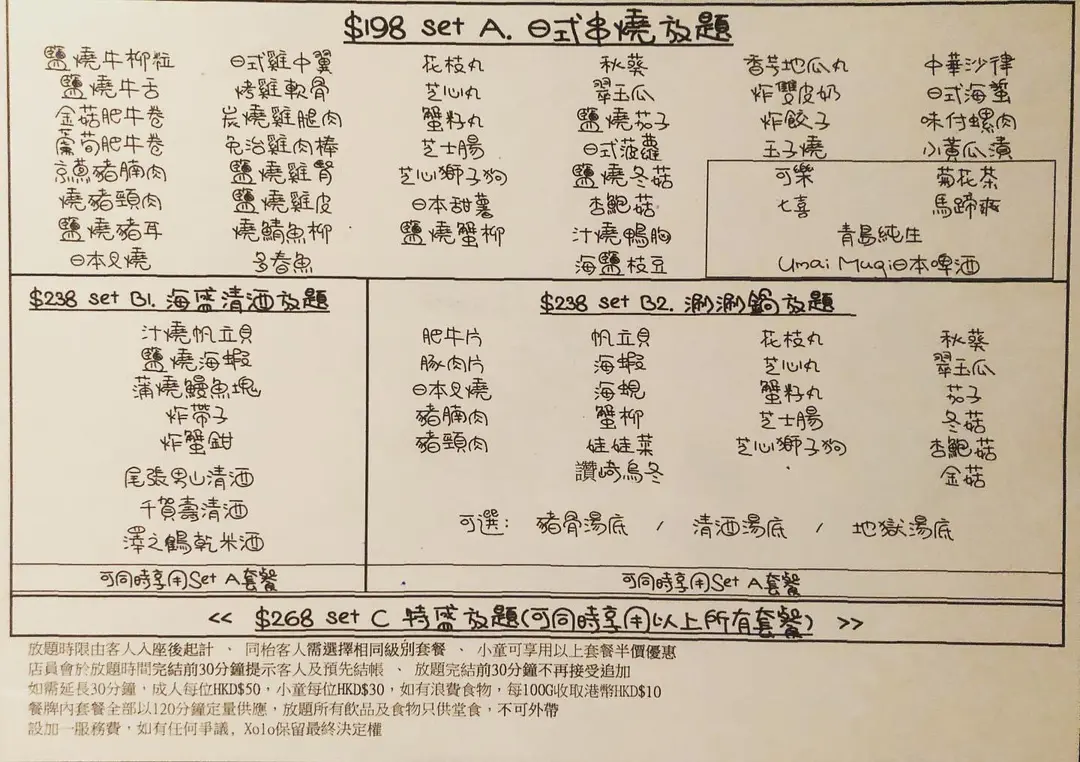 $198 set A. 日式串燒放題
鹽燒牛柳粒 日式雞中翼 花枝丸 秋葵 香芋地瓜丸 中華沙律
鹽燒牛舌 烤雞軟骨 芝心丸 翠玉瓜 炸雙皮奶 日式海蜇
金菇肥牛卷 炭燒雞腿肉 蟹籽丸 鹽燒茄子 炸餃子 味付螺肉
露荀肥牛卷 免治雞肉棒 芝士腸 日式菠蘿 玉子燒 小黃瓜漬
京蔥豬腩肉 鹽燒雞腎 芝心獅子狗 鹽燒冬菇 可樂 菊花茶
燒豬頸肉 鹽燒雞皮 日本甜薯 杏鮑菇 七喜 馬蹄爽
鹽燒豬耳 燒鯖魚柳 鹽燒蟹柳 汁燒鴨胸 青島純生
日本叉燒 多春魚 海鹽枝豆 Umai Mugi日本啤酒
$238 set B1. 海盛清酒放題
汁燒帆立貝
鹽燒海蝦
蒲燒鰻魚塊
炸帶子
炸蟹鉗
尾張男山清酒
千賀壽清酒
澤之鶴乾米酒
可同時享用Set A套餐
$238 set B2. 涮涮鍋放題
肥牛片 帆立貝 花枝丸 秋葵
豚肉片 海蝦 芝心丸 翠玉瓜
日本叉燒 海蜆 蟹籽丸 茄子
豬腩肉 蟹柳 芝士腸 冬菇
豬頸肉 娃娃菜 芝心獅子狗 杏鮑菇
讚崎烏冬 金菇
可選： 豬骨湯底 / 清酒湯底 / 地獄湯底
可同時享用Set A套餐
<< $268 set C 特盛放題(可同時享用以上所有套餐) >>
放題時限由客人入座後起計 、 同枱客人需選擇相同級別套餐 、 小童可享用以上套餐半價優惠
店員會於放題時間完結前30分鐘提示客人及預先結帳 、 放題完結前30分鐘不再接受追加
如需延長30分鐘，成人每位HKD$50，小童每位HKD$30，如有浪費食物，每100G收取港幣HKD$10
餐牌內套餐全部以120分鐘定量供應，放題所有飲品及食物只供堂食，不可外帶
設加一服務費，如有任何爭議, Xolo保留最終決定權